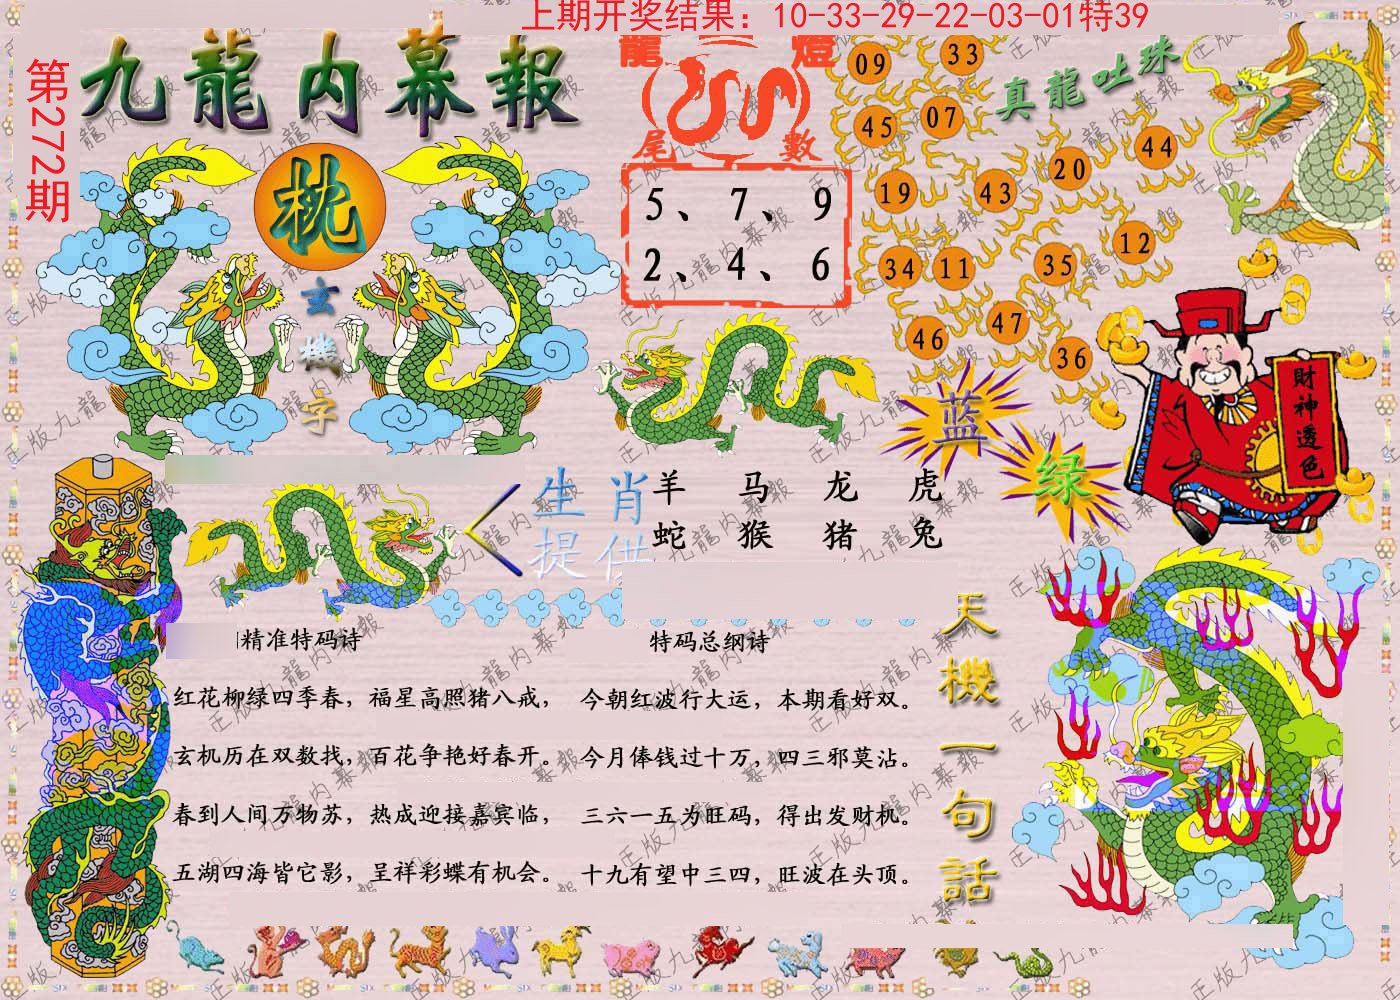 上期开奖结果：10-33-29-22-03-01特39
第272期
九龍内幕報
枕
玄機字
龍燈
尾數
5、7、9
2、4、6
真龍吐珠
09 33
45 07
19 43 20 44
34 11 35 12
46 47 36
財神透色
蓝
绿
生肖
提供
羊 马 龙 虎
蛇 猴 猪 兔
精准特码诗
红花柳绿四季春，福星高照猪八戒，
玄机历在双数找，百花争艳好春开。
春到人间万物苏，热成迎接嘉宾临，
五湖四海皆它影，呈祥彩蝶有机会。
特码总纲诗
今朝红波行大运，本期看好双。
今月俸钱过十万，四三邪莫沾。
三六一五为旺码，得出发财机。
十九有望中三四，旺波在头顶。
天機一句話
正版九龍内幕報